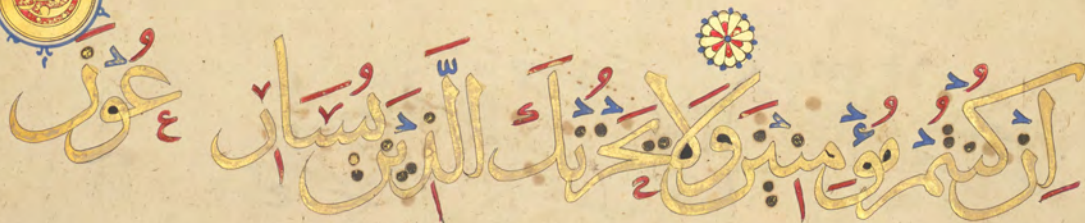 إِنْ كُنْتُمْ مُؤْمِنِينَ وَلَا يَحْزُنْكَ الَّذِينَ يُسَارِعُونَ